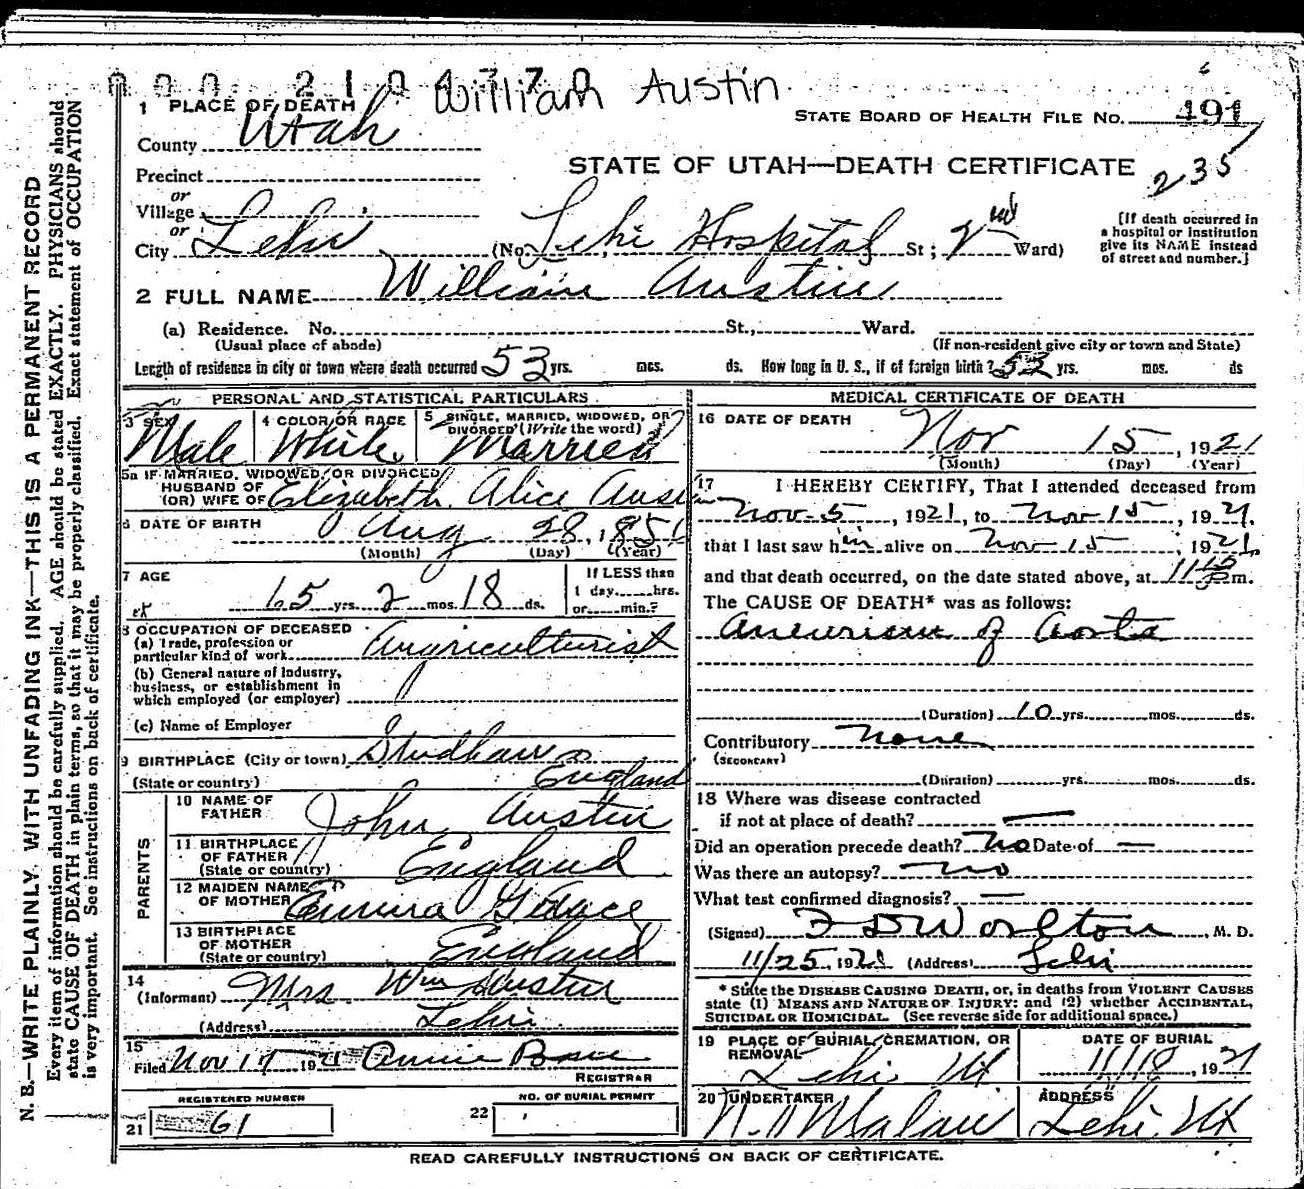 000 2104770
William Austin
1 PLACE OF DEATH
STATE BOARD OF HEALTH FILE NO. 491
County Utah
STATE OF UTAH—DEATH CERTIFICATE
235
Precinct
or
Village
or
City Lehi (No. Lehi Hospital St; 2nd Ward)
[If death occurred in
a hospital or institution
give its NAME instead
of street and number.]
2 FULL NAME William Austin
(a) Residence. No. St., Ward.
(Usual place of abode) (If non-resident give city or town and State)
Length of residence in city or town where death occurred 53 yrs. mos. ds. How long in U. S., if of foreign birth? 53 yrs. mos. ds
PERSONAL AND STATISTICAL PARTICULARS
3 SEX Male
4 COLOR OR RACE White
5 SINGLE, MARRIED, WIDOWED, OR
DIVORCED (Write the word) Married
5a IF MARRIED, WIDOWED, OR DIVORCED
HUSBAND OF
(OR) WIFE OF Elizabeth Alice Austin
6 DATE OF BIRTH Aug 28, 185
(Month) (Day) (Year)
7 AGE
65 yrs. 2 mos. 18 ds.
If LESS than
1 day, hrs.
or min.?
8 OCCUPATION OF DECEASED
(a) Trade, profession or
particular kind of work Augriculturist
(b) General nature of industry,
business, or establishment in
which employed (or employer)
(c) Name of Employer
9 BIRTHPLACE (City or town) Studham
(State or country) England
PARENTS
10 NAME OF
FATHER John Austin
11 BIRTHPLACE
OF FATHER
(State or country) England
12 MAIDEN NAME
OF MOTHER Emma Grace
13 BIRTHPLACE
OF MOTHER
(State or country) England
14
(Informant) Mrs. Wm Austin
(Address) Lehi
15
Filed Nov 17 1921 Annie
REGISTRAR
REGISTERED NUMBER
21 61
NO. OF BURIAL PERMIT
22
MEDICAL CERTIFICATE OF DEATH
16 DATE OF DEATH
Nov 15, 1921
(Month) (Day) (Year)
17 I HEREBY CERTIFY, That I attended deceased from
Nov 5, 1921, to Nov 15, 1921.
that I last saw him alive on Nov 15, 1921,
and that death occurred, on the date stated above, at 11 15 Pm.
The CAUSE OF DEATH* was as follows:
Aneurism of Aorta
(Duration) 10 yrs. mos. ds.
Contributory None
(SECONDARY)
(Duration) yrs. mos. ds.
18 Where was disease contracted
if not at place of death? —
Did an operation precede death? No Date of —
Was there an autopsy? No
What test confirmed diagnosis? —
(Signed) F D Worlton, M. D.
11/25, 1921 (Address) Lehi
* State the DISEASE CAUSING DEATH, or, in deaths from VIOLENT CAUSES
state (1) MEANS AND NATURE OF INJURY: and (2) whether ACCIDENTAL,
SUICIDAL OR HOMICIDAL. (See reverse side for additional space.)
19 PLACE OF BURIAL, CREMATION, OR
REMOVAL
Lehi Ut
DATE OF BURIAL
11/18, 1921
20 UNDERTAKER
ADDRESS
Lehi, Ut
READ CAREFULLY INSTRUCTIONS ON BACK OF CERTIFICATE.
N. B.—WRITE PLAINLY, WITH UNFADING INK—THIS IS A PERMANENT RECORD
Every item of information should be carefully supplied. AGE should be stated EXACTLY. PHYSICIANS should
state CAUSE OF DEATH in plain terms, so that it may be properly classified. Exact statement of OCCUPATION
is very important. See instructions on back of certificate.